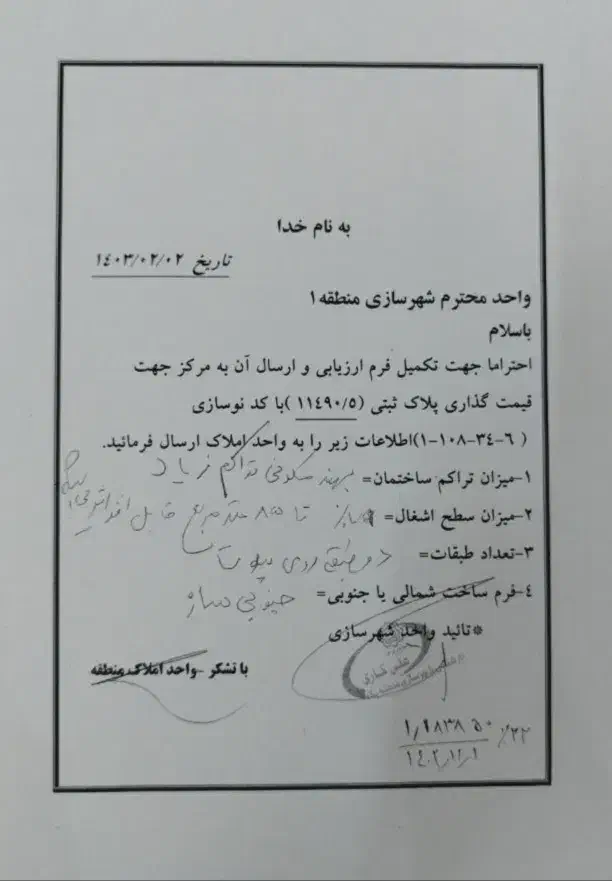 به نام خدا
تاریخ ۱۴۰۳/۰۲/۰۲
واحد محترم شهرسازی منطقه ۱
باسلام
احتراما جهت تکمیل فرم ارزیابی و ارسال آن به مرکز جهت
قیمت گذاری پلاک ثبتی (۱۱۴۹۰/۵ )با کد نوسازی
( ۶-۳۴-۱۰۸-۱)اطلاعات زیر را به واحد املاک ارسال فرمائید.
۱-میزان تراکم ساختمان= پهنه مسکونی تراکم زیاد
۲-میزان سطح اشغال= تا ۸۵ متر مربع قابل
۳-تعداد طبقات= دو طبقه روی پیلوت
۴-فرم ساخت شمالی یا جنوبی= جنوبی ساز
*تائید واحد شهرسازی
با تشکر -واحد املاک منطقه